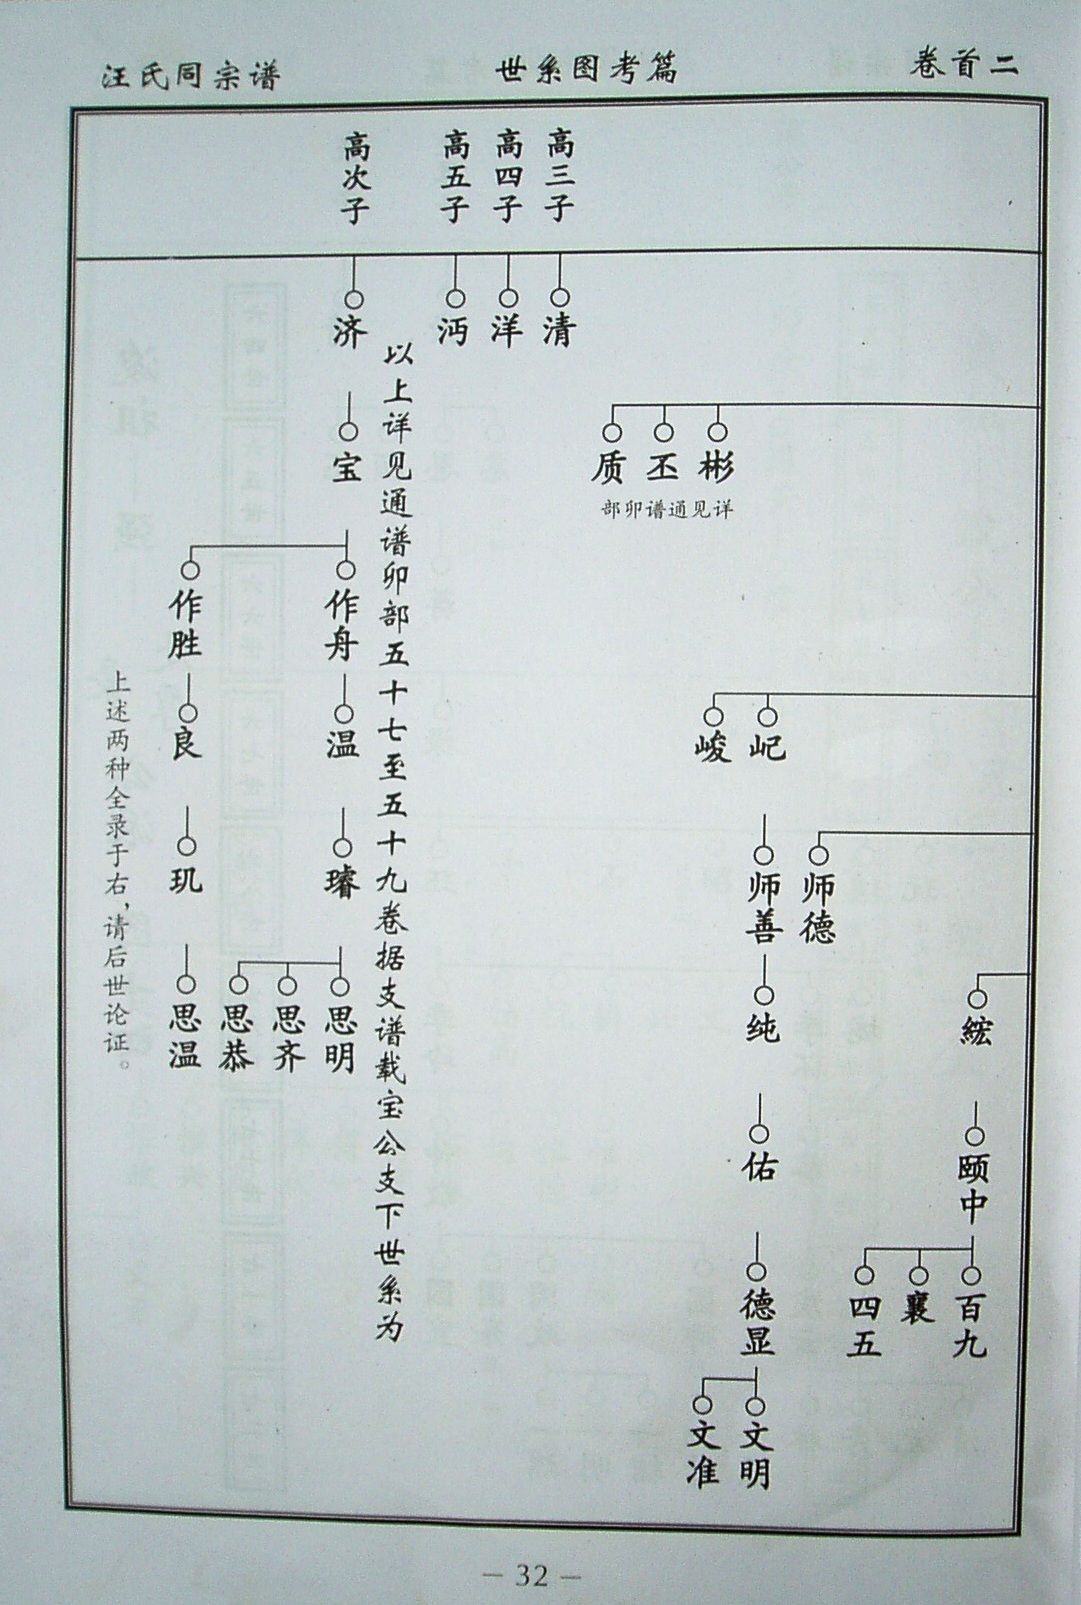 汪氏同宗谱
世系图考篇
卷首二
高三子
高四子
高五子
高次子
清
洋
沔
济
彬
丕
质
部卯谱通见详
屺
峻
师德
师善
纯
佑
德显
文明
文准
綋
颐中
百九
襄
四五
以上详见通谱卯部五十七至五十九卷据支谱载宝公支下世系为
宝
作舟
作胜
温
良
璿
玑
思明
思齐
思恭
思温
上述两种全录于右,请后世论证。
— 32 —